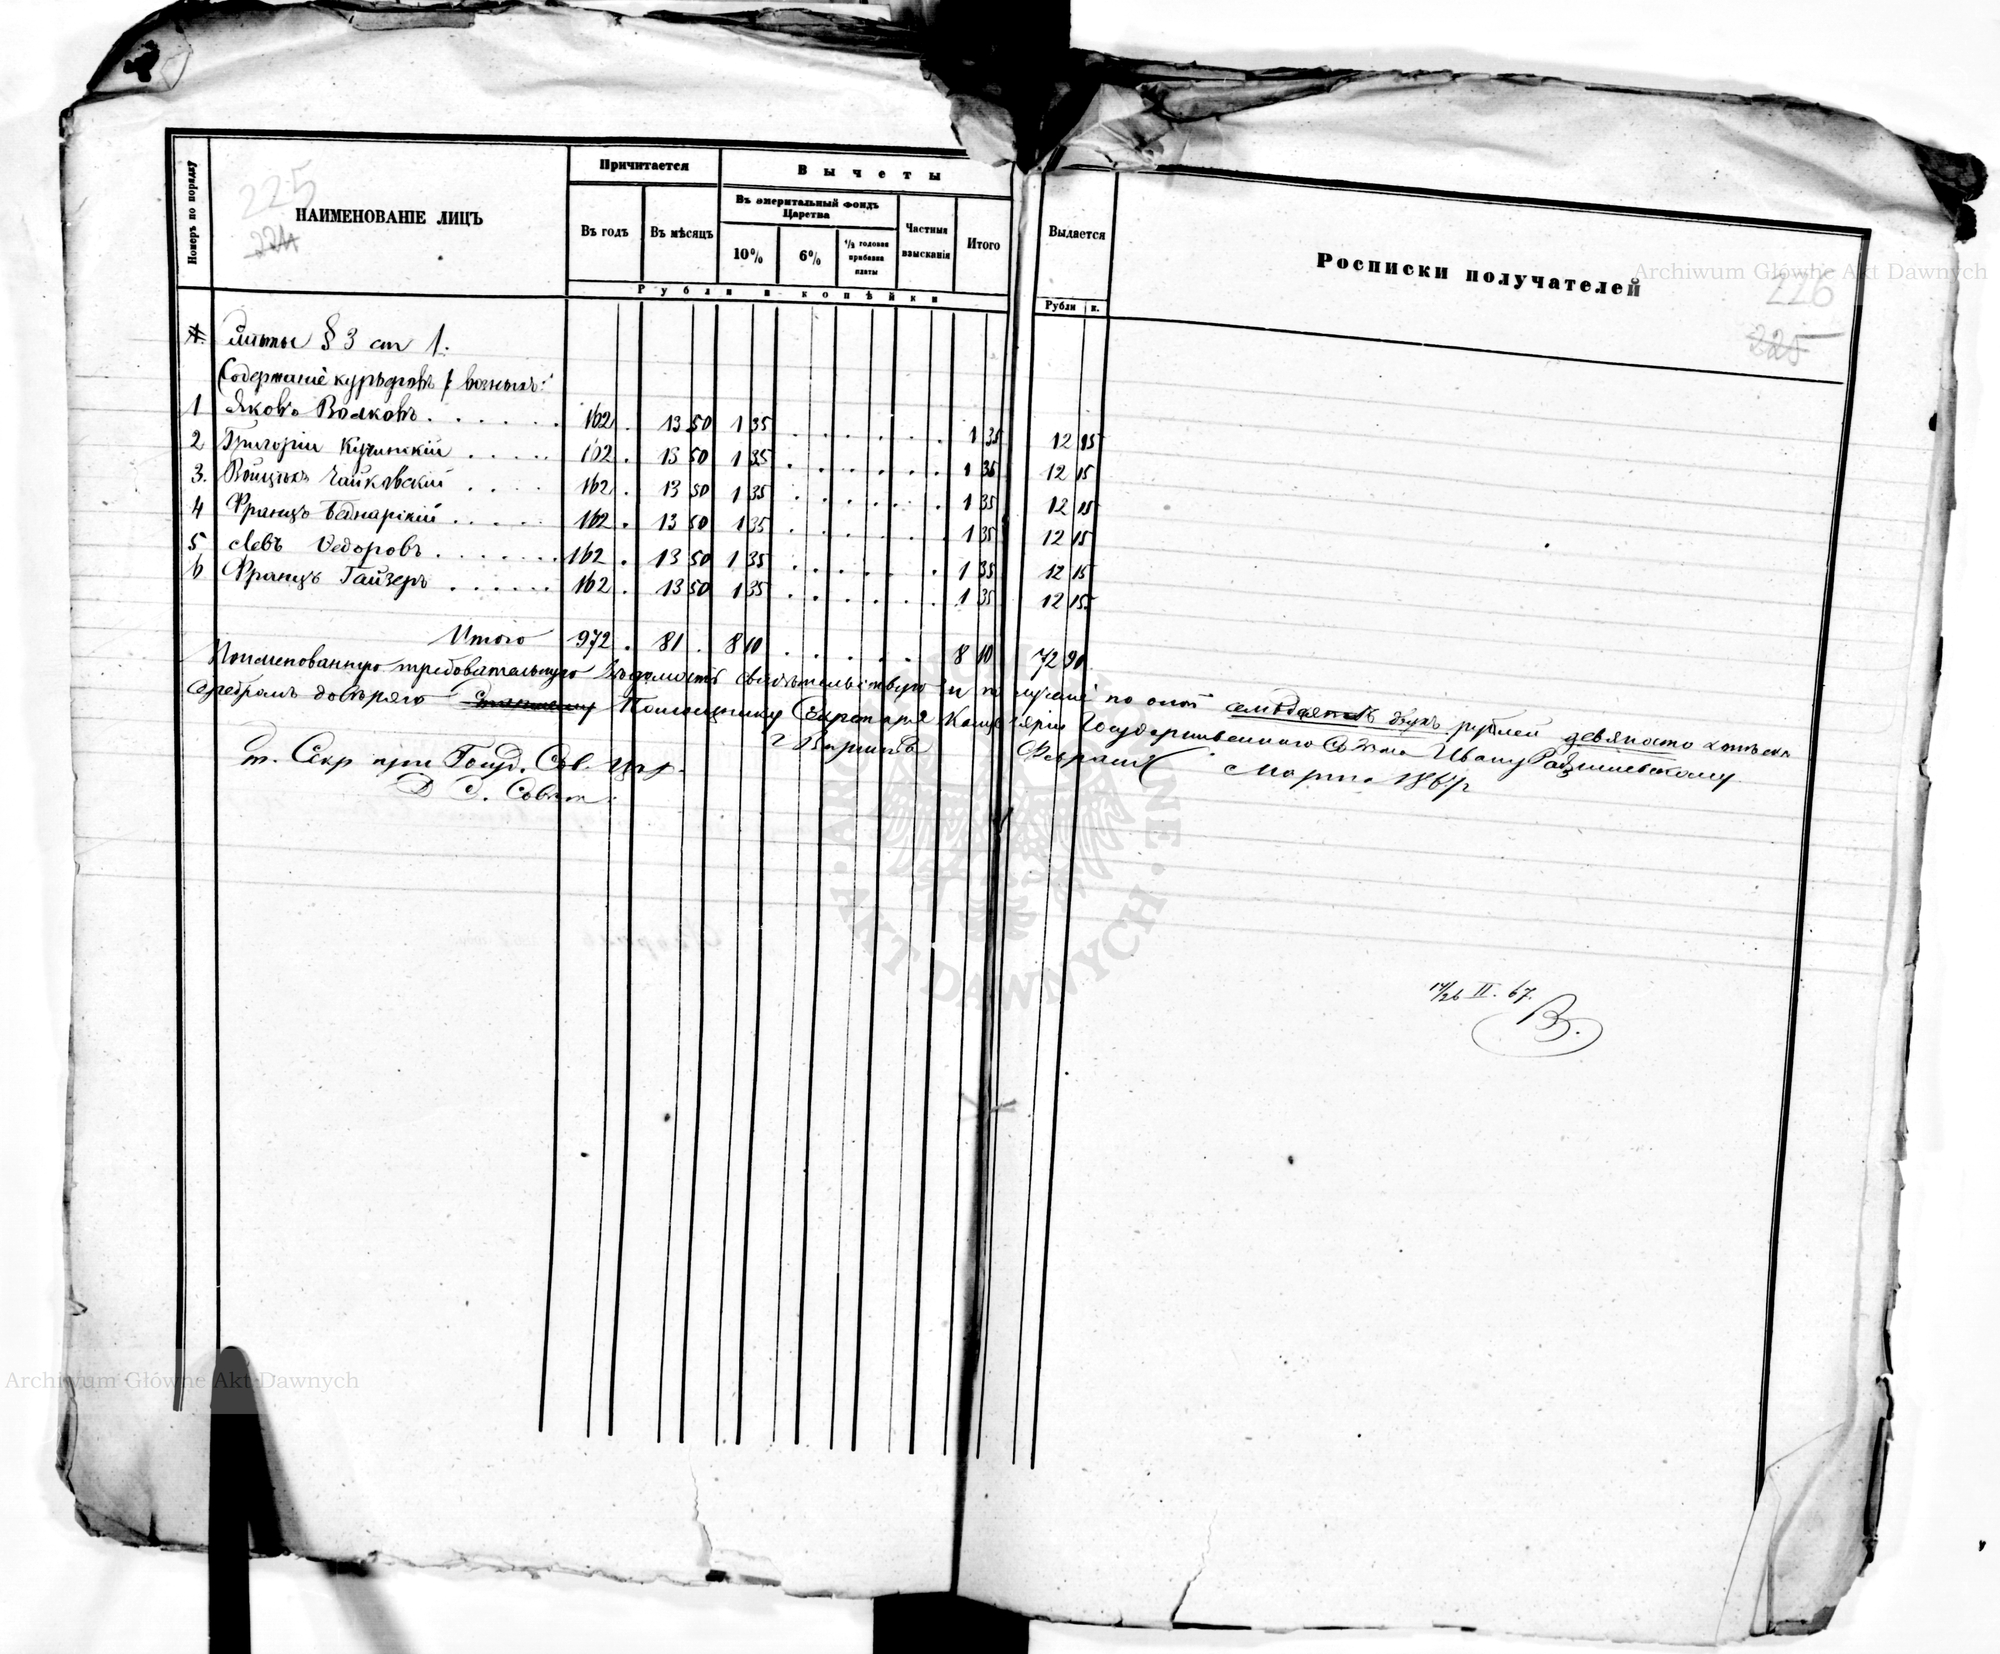 Номеръ по порядку
НАИМЕНОВАНІЕ ЛИЦЪ
Причитается
Въ годъ
Въ мѣсяцъ
Вычеты
Въ эмеритальный фондъ Царства
10%
6%
1/3 годовая прибавка платы
Частныя взысканія
Итого
Рубли и копѣйки
Выдается
Рубли к.
Росписки получателей
225
224
226
225
§ 3 ст 1.
Содержаніе курьеровъ
1 Яковъ Волковъ 162 . 13 50 1 35 1 35 12 15
2 Григорій Кучинскій 162 . 13 50 1 35 1 35 12 15
3. Войцехъ Чайковскій 162 . 13 50 1 35 1 35 12 15
4 Францъ Беднарскій 162 . 13 50 1 35 1 35 12 15
5 Левъ Ѳедоровъ 162 . 13 50 1 35 1 35 12 15
6 Францъ Гайзеръ 162 . 13 50 1 35 1 35 12 15
Итого 972 . 81 . 8 10 8 10 72 90
Поименованную требовательную Вѣдомость свидѣтельствую и полученіе по оной семьдесятъ двухъ рублей девяносто копѣекъ
серебромъ довѣряю Помощнику Секретаря Канцеляріи Государственнаго Совѣта Ивану
г Варшава Февраля Марта 1867 г
Секр при Госуд. Сов. Цар.
Д С. Совѣт.
14/26 II. 67.
Archiwum Główne Akt Dawnych
Archiwum Główne Akt Dawnych
AKT DAWNYCH